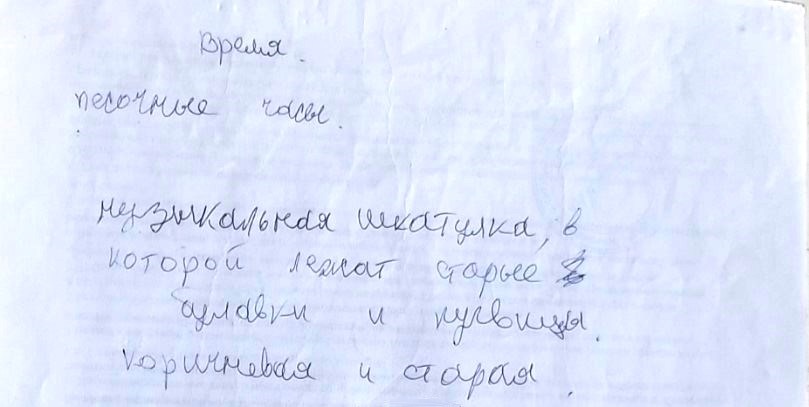 Время.
песочные часы.
музыкальная шкатулка, в
которой лежат старые
булавки и пуговицы.
коричневая и старая.